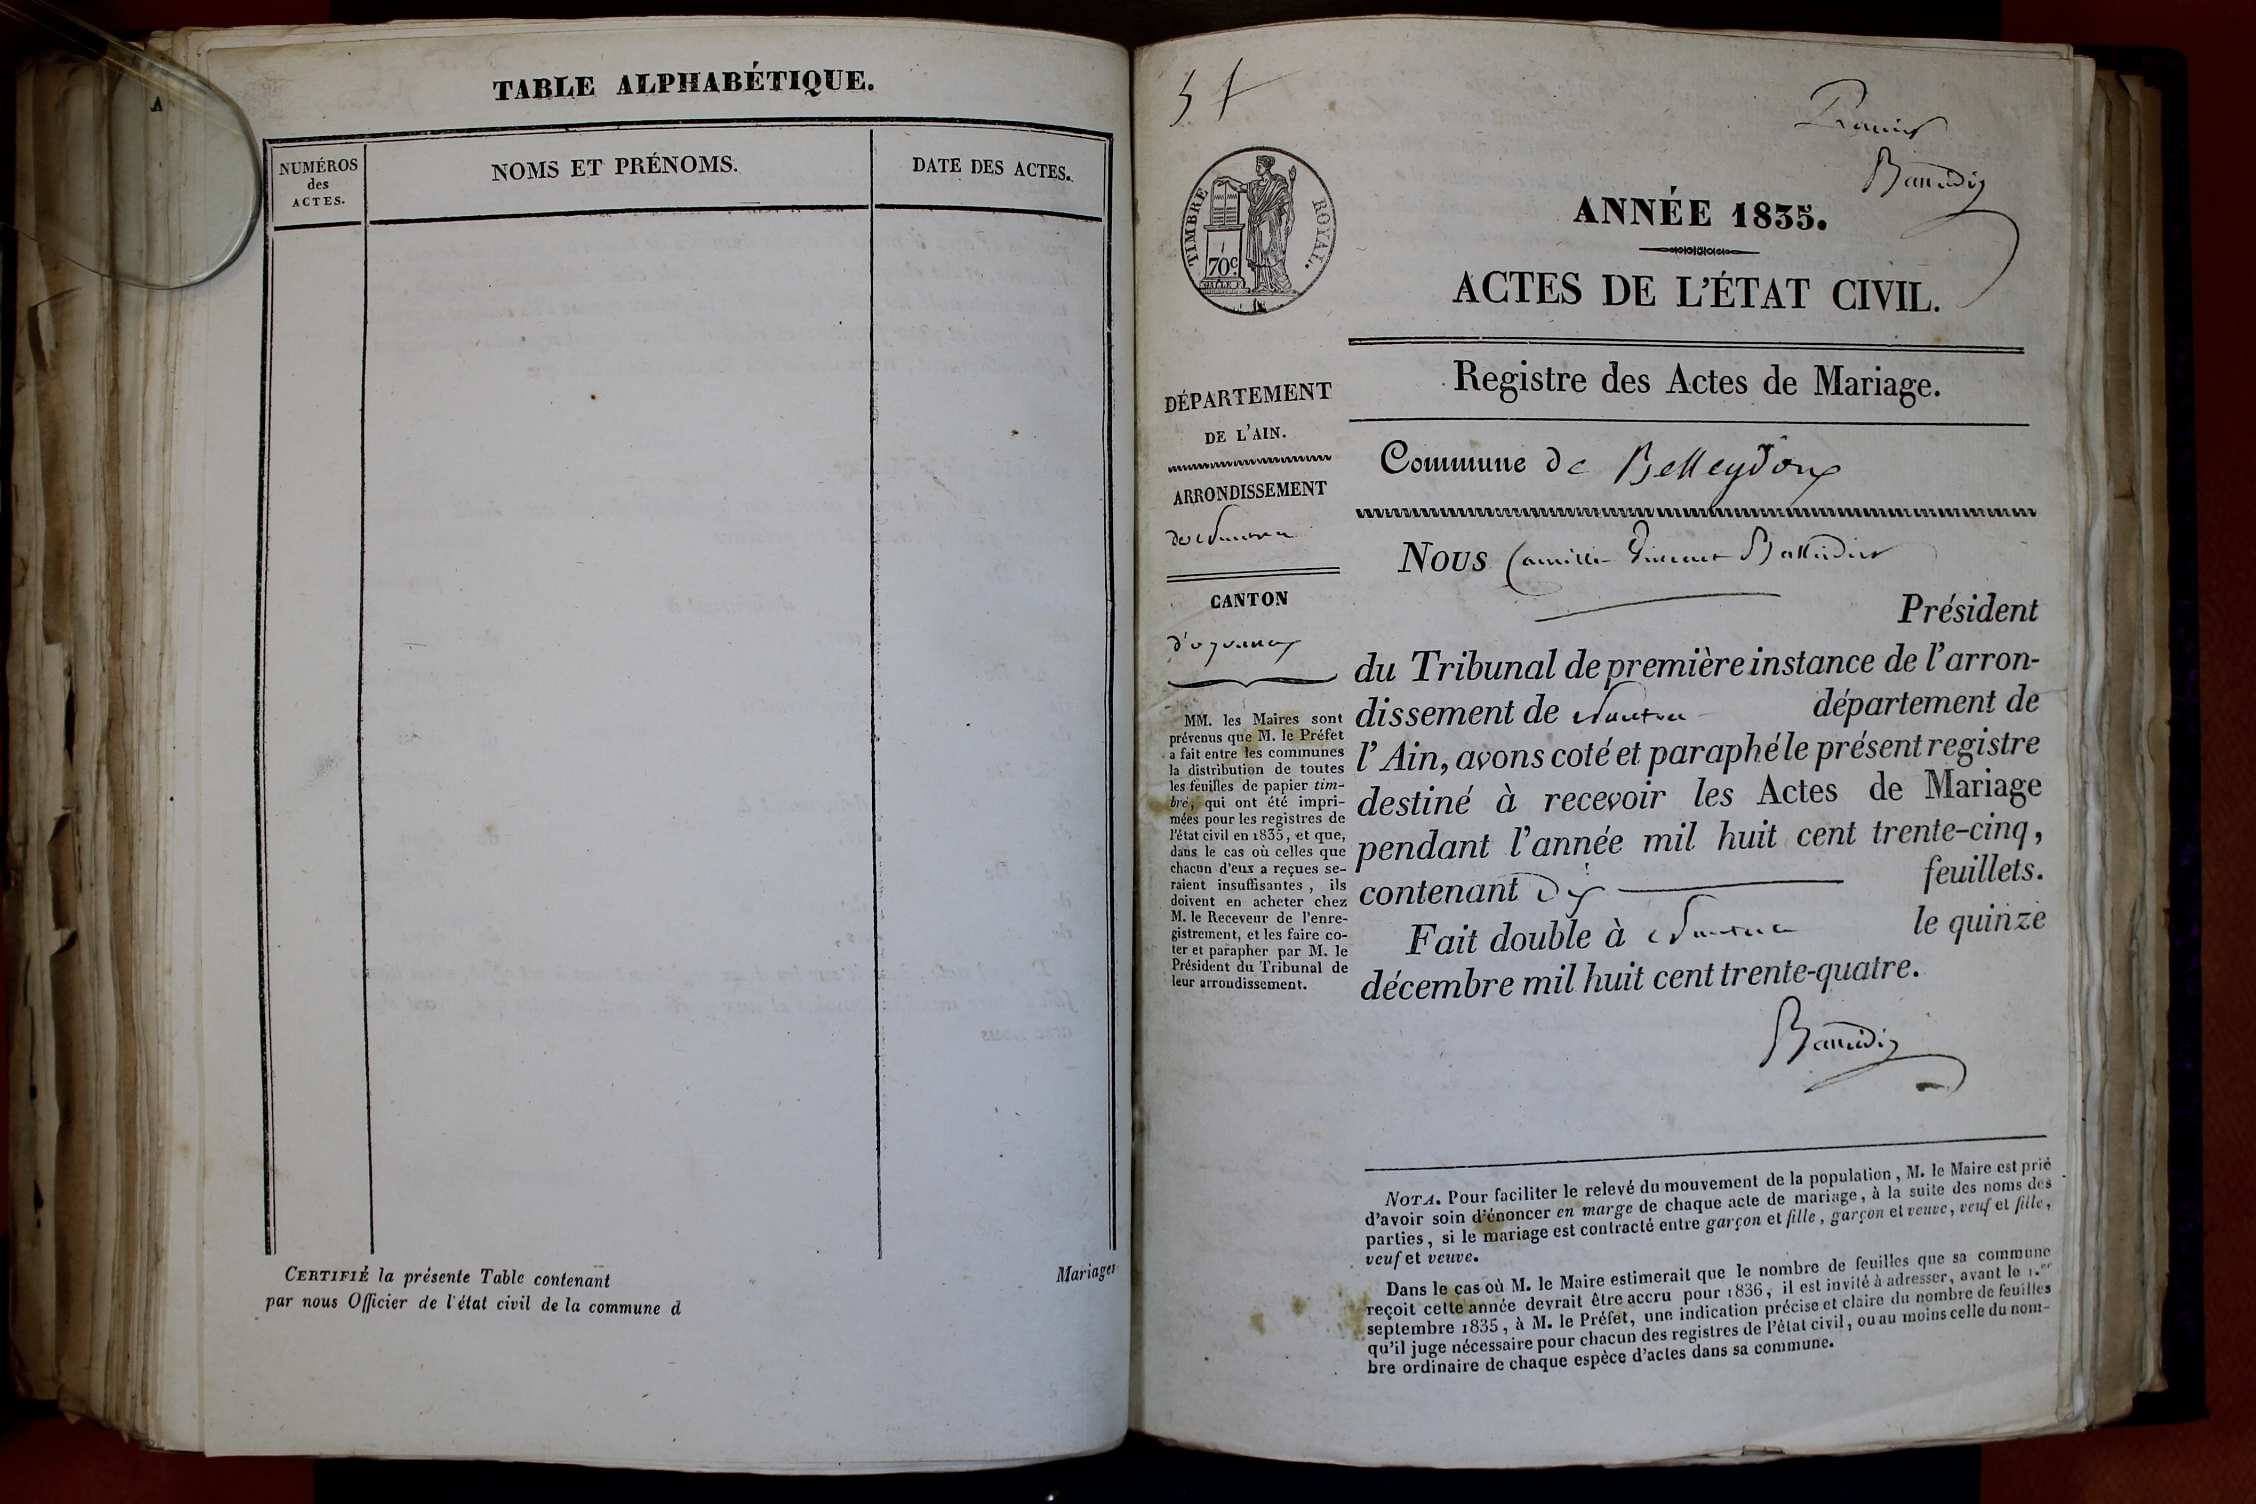 A
TABLE ALPHABÉTIQUE.
NUMÉROS
des
ACTES.
NOMS ET PRÉNOMS.
DATE DES ACTES.
CERTIFIÉ la présente Table contenant
Mariages
par nous Officier de l'état civil de la commune d
TIMBRE ROYAL.
70c.
ANNÉE 1835.
ACTES DE L'ÉTAT CIVIL.
Registre des Actes de Mariage.
DÉPARTEMENT
DE L'AIN.
ARRONDISSEMENT
de Nantua
CANTON
d'oyonnax
MM. les Maires sont
prévenus que M. le Préfet
a fait entre les communes
la distribution de toutes
les feuilles de papier tim-
bré, qui ont été impri-
mées pour les registres de
l'état civil en 1835, et que,
dans le cas où celles que
chacun d'eux a reçues se-
raient insuffisantes, ils
doivent en acheter chez
M. le Receveur de l'enre-
gistrement, et les faire co-
ter et parapher par M. le
Président du Tribunal de
leur arrondissement.
Commune de Belleydoux
Nous Camille Vincent
Président
du Tribunal de première instance de l'arron-
dissement de Nantua département de
l'Ain, avons coté et paraphé le présent registre
destiné à recevoir les Actes de Mariage
pendant l'année mil huit cent trente-cinq,
contenant Dix feuillets.
Fait double à Nantua le quinze
décembre mil huit cent trente-quatre.
NOTA. Pour faciliter le relevé du mouvement de la population, M. le Maire est prié
d'avoir soin d'énoncer en marge de chaque acte de mariage, à la suite des noms des
parties, si le mariage est contracté entre garçon et fille, garçon et veuve, veuf et fille,
veuf et veuve.
Dans le cas où M. le Maire estimerait que le nombre de feuilles que sa commune
reçoit cette année devrait être accru pour 1836, il est invité à adresser, avant le 1.er
septembre 1835, à M. le Préfet, une indication précise et claire du nombre de feuilles
qu'il juge nécessaire pour chacun des registres de l'état civil, ou au moins celle du nom-
bre ordinaire de chaque espèce d'actes dans sa commune.